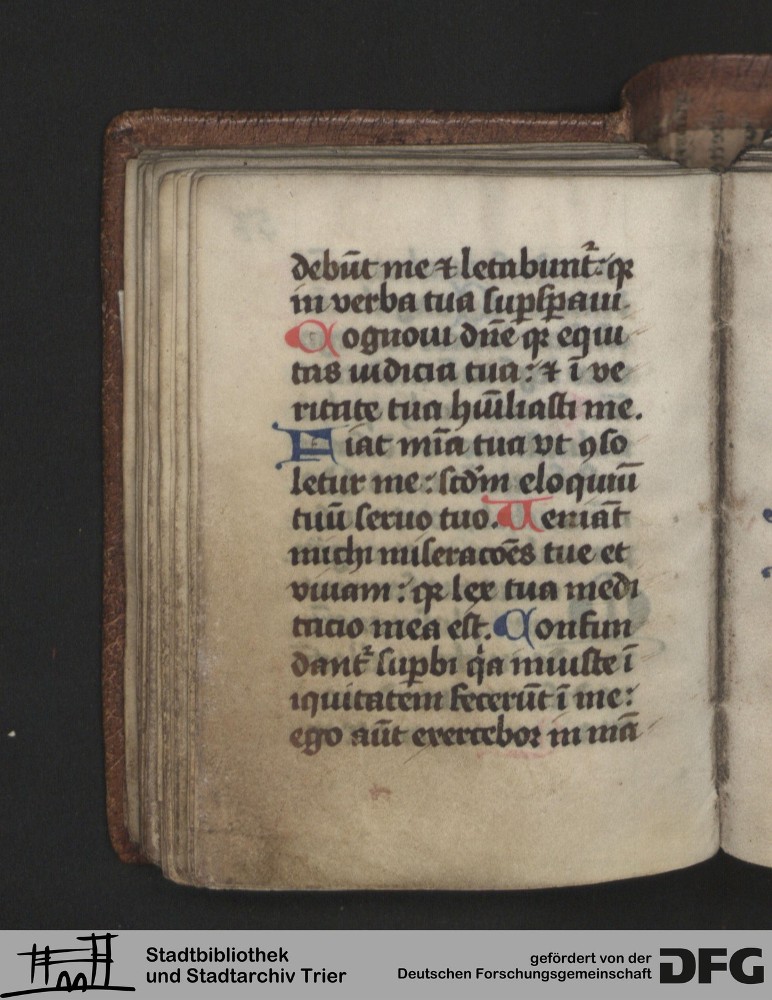 debūt me ⁊ letabunt᷑: qꝛ
in verba tua suꝑsꝑaui.
Cognoui dn̄e qꝛ equi
tas iudicia tua: ⁊ ī ve
ritate tua hūiliasti me.
Fiat mīa tua vt ꝯso
letur me: scd'm eloquiū
tuū seruo tuo. Ueniāt
michi miseracōēs tue et
viuam: qꝛ lex tua medi
tacio mea est. Confun
dant᷑ suꝑbi qͥa iniuste ī
iquitatem fecerūt ī me:
ego aūt exercebor in mā
Stadtbibliothek
und Stadtarchiv Trier
gefördert von der
Deutschen Forschungsgemeinschaft
DFG